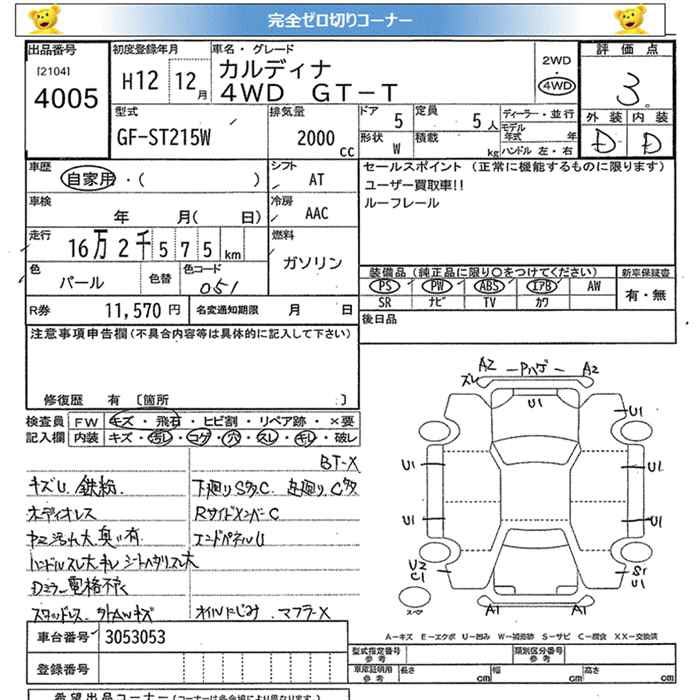 完全ゼロ切りコーナー
出品番号 初度登録年月 車名・グレード 評価点
[2104] 4005 H12 12月 カルディナ 4WD GT-T 2WD 4WD 3.
型式 排気量 ドア 定員 ディーラー・並行 外装 内装
GF-ST215W 2000cc 5 5人 モデル年式 年 D D
形状 W 積載 kg ハンドル 左・右
車歴 自家用・( ) シフト AT セールスポイント (正常に機能するものに限ります)
ユーザー買取車!!
ルーフレール
車検 年 月( 日) 冷房 AAC
走行 16万2千575km 燃料 ガソリン
色 パール 色替 色コード 051
装備品(純正品に限り○をつけてください) 新車保証書
PS PW ABS エアB AW 有・無
SR ナビ TV カワ
R券 11,570円 名変通知期限 月 日 後日品
注意事項申告欄(不具合内容等は具体的に記入して下さい)
修復歴 有 [箇所 ]
検査員 FW キズ・飛石・ヒビ割・リペア跡・×要
記入欄 内装 キズ・汚レ・コゲ・穴・スレ・キレ・破レ
BT-X
キズU. 鉄粉 下廻りSタC.
オーディオレス RサイドメンバーC
エンドパネルU
スタッドレス オイルにじみ マフラーX
車台番号 3053053
登録番号
A2 Pハゲ A2
ズレ
U1
U1
U1 U1
U1 U1
U2 C1 S1 U1
スペア A1 A1
A-キズ E-エクボ U-凹み W-補修跡 S-サビ C-腐食 XX-交換済
型式指定番号 参考 類別区分番号 参考
車庫証明用 参考 長さ cm 幅 cm 高さ cm
希望出品コーナー(コーナーは各会場により異なります。)